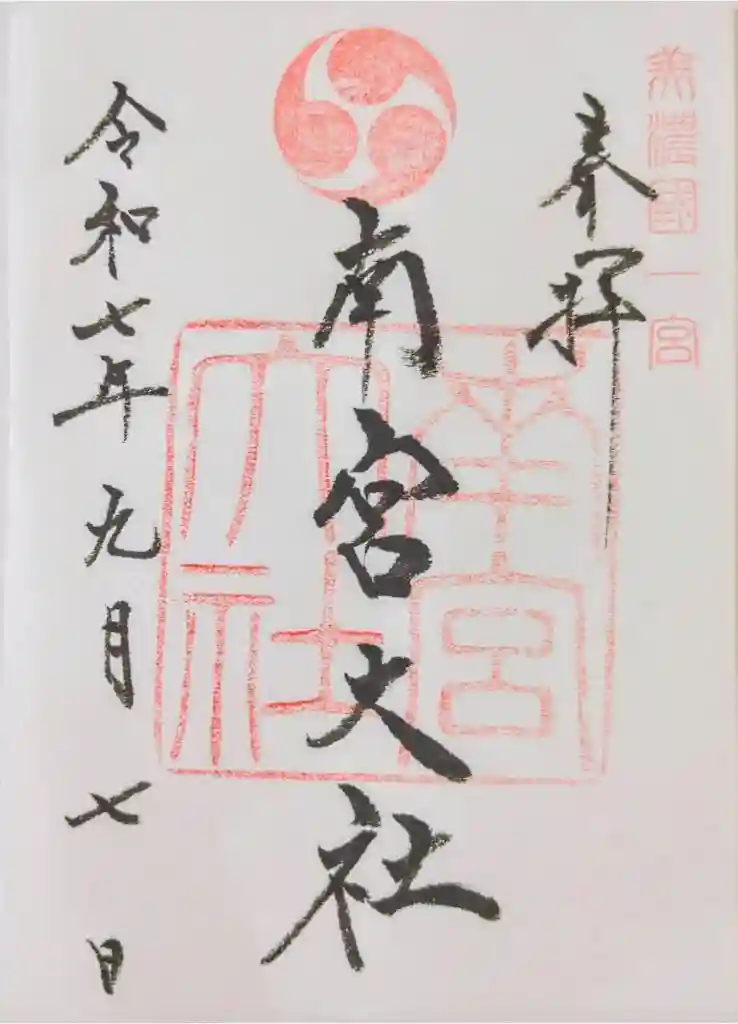 美濃國一宮
奉拝
南宮大社
南宮
大社
令和七年九月七日